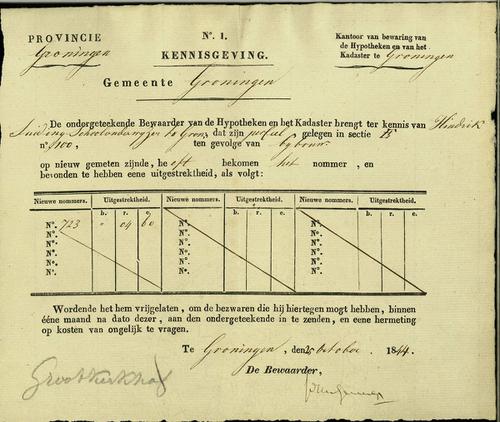 PROVINCIE
Groningen
Nº. 1.
KENNISGEVING.
Kantoor van bewaring van
de Hypotheken en van het
Kadaster te Groningen
Gemeente Groningen
De ondergeteekende Bewaarder van de Hypotheken en het Kadaster brengt ter kennis van Hindrik
Schoolonderwyzer te Gron: dat zijn perceel gelegen in sectie
nº. 100, ten gevolge van bybouw
op nieuw gemeten zijnde, heeft bekomen het nommer, en
bevonden te hebben eene uitgestrektheid, als volgt:
Nieuwe nommers. Uitgestrektheid. Nieuwe nommers. Uitgestrektheid. Nieuwe nommers. Uitgestrektheid.
b. r. e. b. r. e. b. r. e.
Nº. 723 " 04 60 Nº. Nº.
Nº. Nº. Nº.
Nº. Nº. Nº.
Nº. Nº. Nº.
Nº. Nº. Nº.
Nº. Nº. Nº.
Wordende het hem vrijgelaten, om de bezwaren die hij hiertegen mogt hebben, binnen
ééne maand na dato dezer, aan den ondergeteekende in te zenden, en eene hermeting
op kosten van ongelijk te vragen.
Te Groningen, den 25 October 1844.
De Bewaarder,
Groot Kerkhof